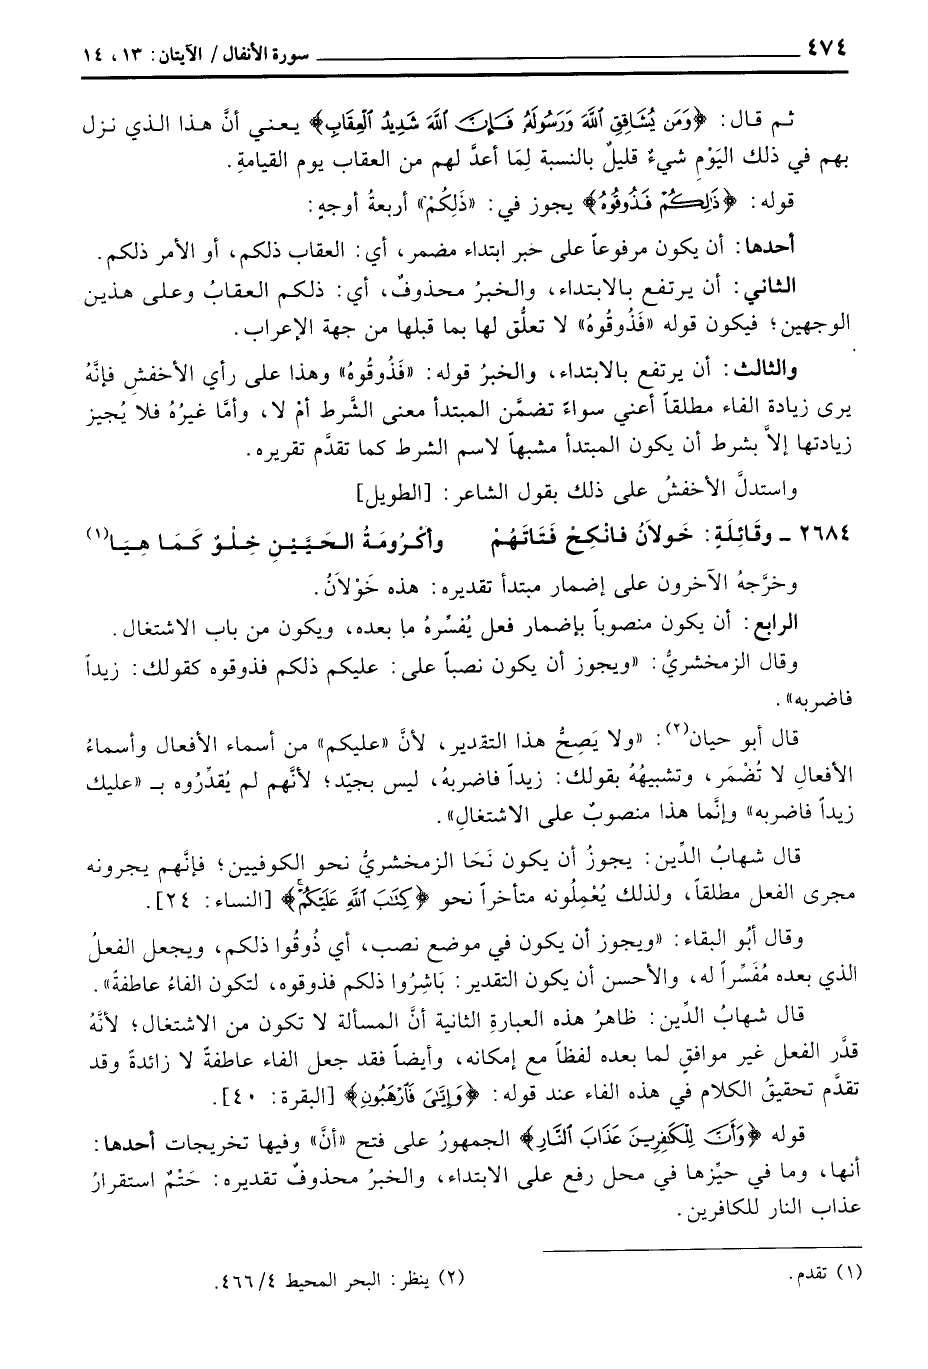 ٤٧٤ سورة الأنفال / الآيتان: ١٣ ، ١٤
ثـم قـال: ﴿وَمَن يُشَاقِقِ ٱللَّهَ وَرَسُولَهُۥ فَإِنَّ ٱللَّهَ شَدِيدُ ٱلْعِقَابِ﴾ يـعـنـي أنَّ هـذا الـذي نـزل
بهم في ذلك اليَوْمِ شيءٌ قليلٌ بالنسبة لِمَا أعدَّ لهم من العقاب يوم القيامةِ.
قوله: ﴿ذَٰلِكُمْ فَذُوقُوهُ﴾ يجوز في: «ذَلِكُمْ» أربعةُ أوجهٍ:
أحدها: أن يكون مرفوعاً على خبر ابتداء مضمر، أي: العقاب ذلكم، أو الأمر ذلكم.
الثاني: أن يرتفع بالابتداء، والخبرُ محذوفٌ، أي: ذلكم العقابُ وعلى هذين
الوجهين؛ فيكون قوله «فَذُوقُوهُ» لا تعلُّق لها بما قبلها من جهة الإعراب.
والثالث: أن يرتفع بالابتداء، والخبرُ قوله: «فَذُوقُوهُ» وهذا على رأي الأخفشِ فإنَّهُ
يرى زيادة الفاء مطلقاً أعني سواءً تضمَّن المبتدأ معنى الشَّرط أمْ لا، وأمَّا غيرُهُ فلا يُجيز
زيادتها إلاَّ بشرط أن يكون المبتدأ مشبهاً لاسم الشرط كما تقدَّم تقريره.
واستدلَّ الأخفشُ على ذلك بقول الشاعر: [الطويل]
٢٦٨٤ ـ وقَائِلَةٍ: خَولاَنُ فانْكِحْ فَتَاتَهُمْ وأكْرُومَةُ الحَيَّيْنِ خِلْوٌ كَمَا هِيَا(١)
وخرَّجهُ الآخرون على إضمار مبتدأ تقديره: هذه خَوْلاَنُ.
الرابع: أن يكون منصوباً بإضمار فعل يُفسِّرهُ ما بعده، ويكون من باب الاشتغال.
وقال الزمخشريُّ: «ويجوز أن يكون نصباً على: عليكم ذلكم فذوقوه كقولك: زيداً
فاضربه».
قال أبو حيان(٢): «ولا يَصِحُّ هذا التقدير، لأنَّ «عليكم» من أسماء الأفعال وأسماءُ
الأفعالِ لا تُضْمَر، وتشبيهُهُ بقولك: زيداً فاضربهُ، ليس بجيّد؛ لأنَّهم لم يُقدِّرُوه بـ «عليك
زيداً فاضربه» وإنَّما هذا منصوبٌ على الاشتغالِ».
قال شهابُ الدِّين: يجوزُ أن يكون نَحَا الزمخشريُّ نحو الكوفيين؛ فإنَّهم يجرونه
مجرى الفعل مطلقاً، ولذلك يُعْمِلُونه متأخراً نحو ﴿كِتَٰبَ ٱللَّهِ عَلَيْكُمْ﴾ [النساء: ٢٤].
وقال أبُو البقاء: «ويجوز أن يكون في موضع نصب، أي ذُوقُوا ذلكم، ويجعل الفعلُ
الذي بعده مُفَسِّراً له، والأحسن أن يكون التقدير: بَاشِرُوا ذلكم فذوقوه، لتكون الفاءُ عاطفةً».
قال شهابُ الدِّين: ظاهرُ هذه العبارةِ الثانية أنَّ المسألة لا تكون من الاشتغال؛ لأنَّهُ
قدَّر الفعل غير موافقٍ لما بعده لفظاً مع إمكانه، وأيضاً فقد جعل الفاء عاطفةً لا زائدةً وقد
تقدَّم تحقيقُ الكلام في هذه الفاء عند قوله: ﴿وَإِيَّٰىَ فَٱرْهَبُونِ﴾ [البقرة: ٤٠].
قوله ﴿وَأَنَّ لِلْكَٰفِرِينَ عَذَابَ ٱلنَّارِ﴾ الجمهورُ على فتح «أنَّ» وفيها تخريجات أحدها:
أنها، وما في حيِّزها في محل رفع على الابتداء، والخبرُ محذوفٌ تقديره: حَتْمٌ استقرارُ
عذاب النار للكافرين.
(١) تقدم. (٢) ينظر: البحر المحيط ٤/٤٦٦.